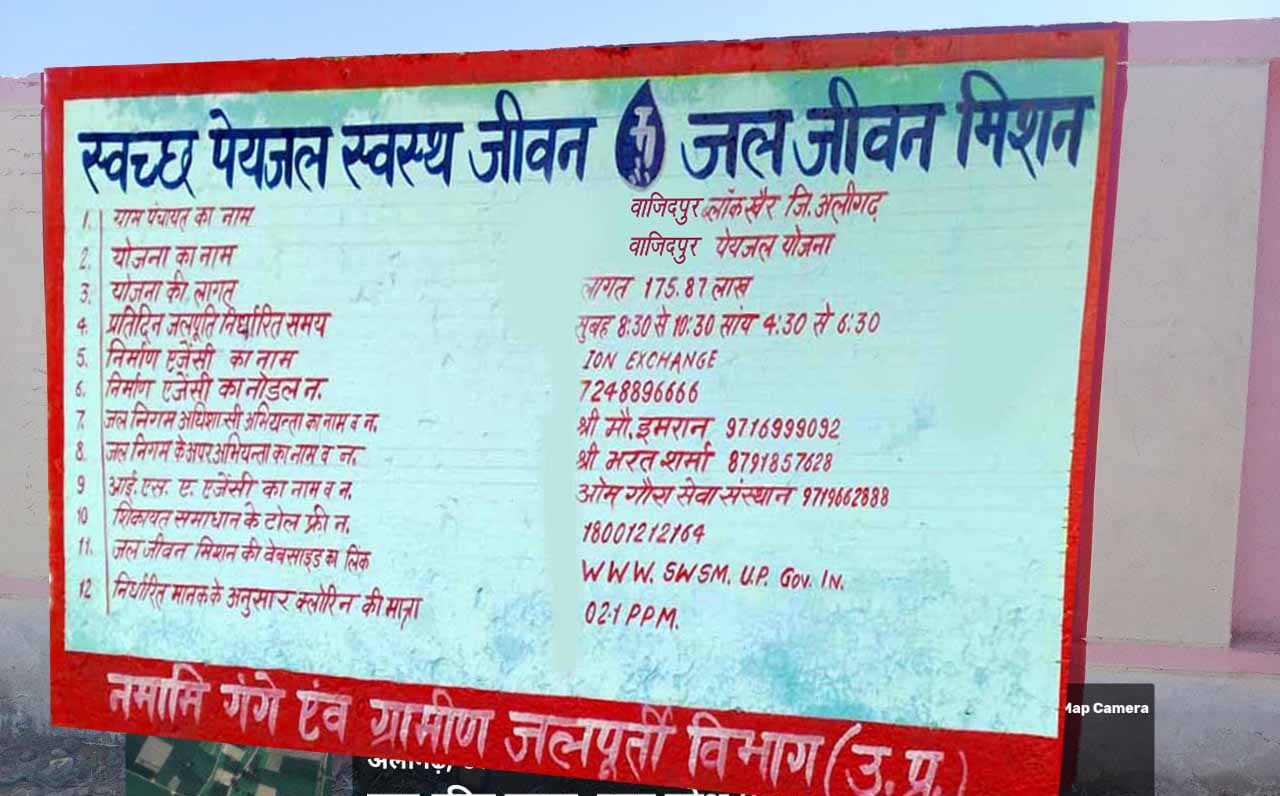 स्वच्छ पेयजल स्वस्थ जीवन जल जीवन मिशन
1. ग्राम पंचायत का नाम वाजिदपुर ब्लॉक खैर जि. अलीगढ़
2. योजना का नाम वाजिदपुर पेयजल योजना
3. योजना की लागत लागत 175.87 लाख
4. प्रतिदिन जलपूर्ति निर्धारित समय सुबह 8:30 से 10:30 सांय 4:30 से 6:30
5. निर्माण एजेंसी का नाम ION EXCHANGE
6. निर्माण एजेंसी का नोडल न. 7248896666
7. जल निगम अधिशासी अभियन्ता का नाम व न. श्री मौ. इमरान 9716999092
8. जल निगम के अपर अभियन्ता का नाम व न. श्री भरत शर्मा 8791857628
9 आई. एस. ए. एजेंसी का नाम व न. ओम गौरा सेवा संस्थान 9719662888
10 शिकायत समाधान के टोल फ्री न. 18001212164
11. जल जीवन मिशन की वेबसाइड का लिंक WWW. SWSM. U.P. Gov. In.
12 निर्धारित मानक के अनुसार क्लोरिन की मात्रा 02.1 PPM.
नमामि गंगे एंव ग्रामीण जलपूर्ती विभाग (उ.प्र.)
Map Camera